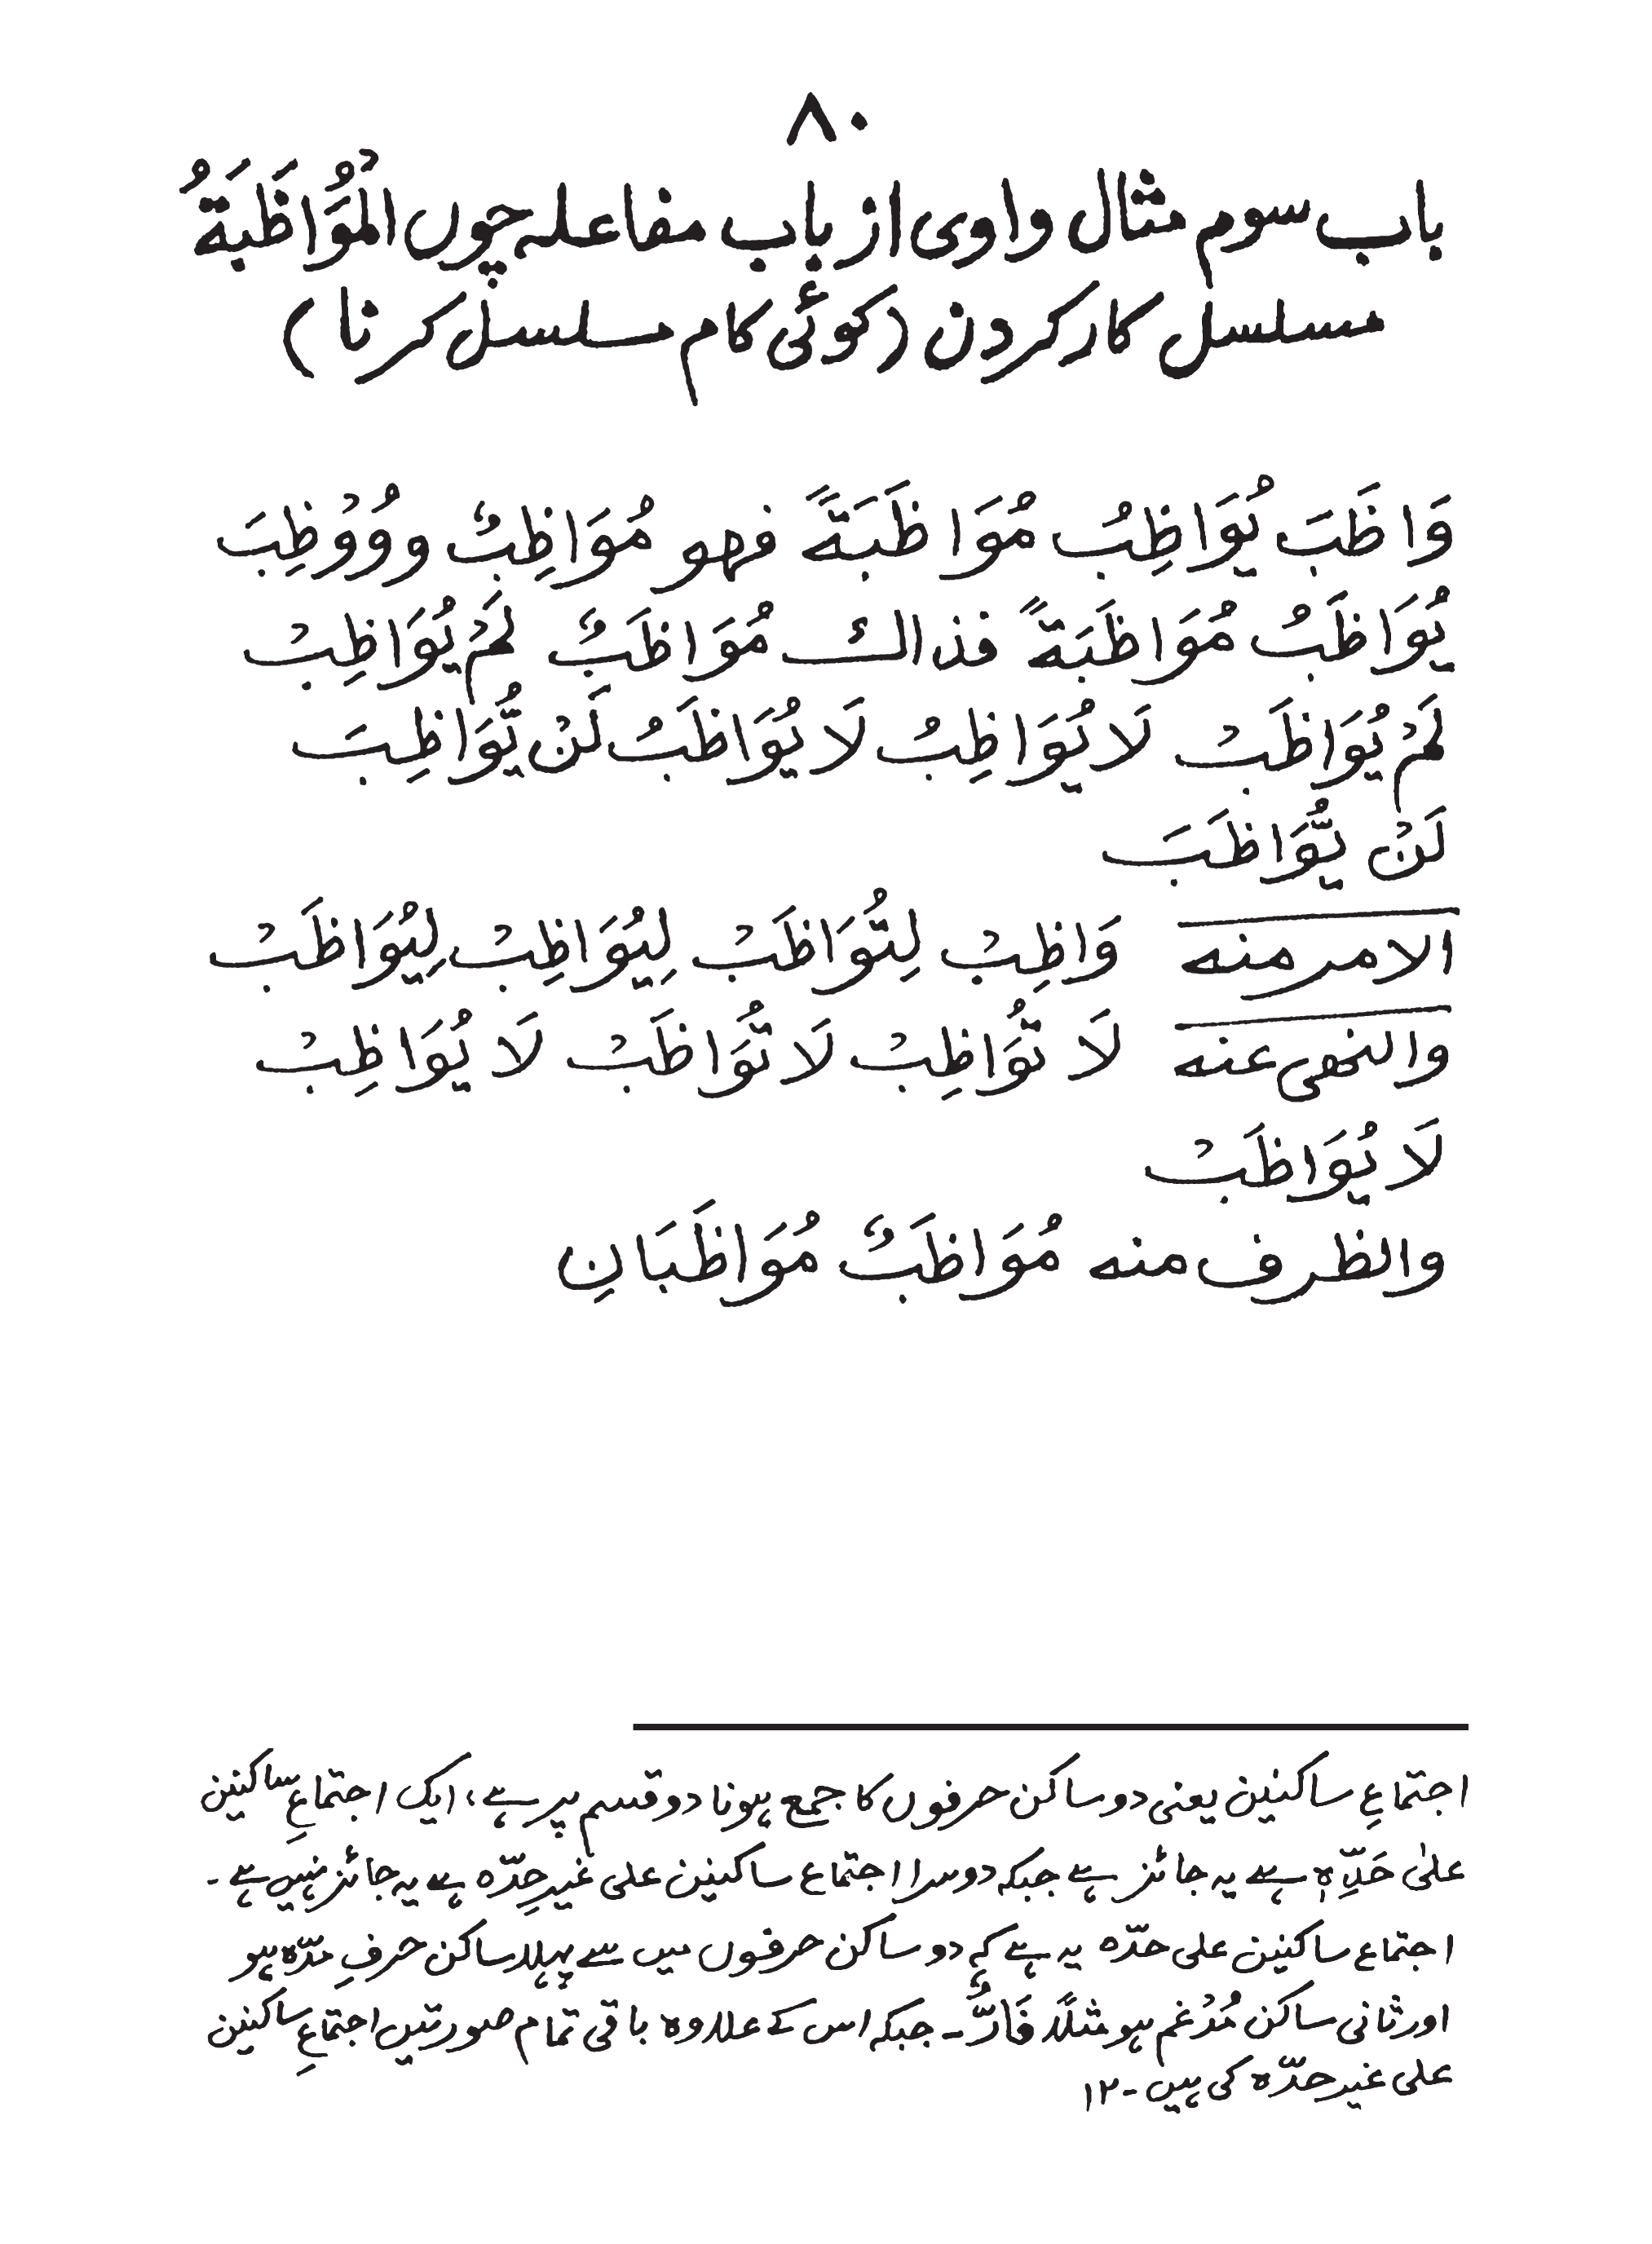 ۸۰
باب سوم مثال واوی از باب مفاعلہ چوں الْمُوَاظَبَةُ
مسلسل کار کردن (کوئی کام مسلسل کرنا)
وَاظَبَ يُوَاظِبُ مُوَاظَبَةً فهو مُوَاظِبٌ و وُوْظِبَ
يُوَاظَبُ مُوَاظَبَةً فذاك مُوَاظَبٌ لَمْ يُوَاظِبْ
لَمْ يُوَاظَبْ لَا يُوَاظِبُ لَا يُوَاظَبُ لَنْ يُّوَاظِبَ
لَنْ يُّوَاظَبَ
الامر منه وَاظِبْ لِتُوَاظَبْ لِيُوَاظِبْ لِيُوَاظَبْ
والنهی عنه لَا تُوَاظِبْ لَا تُوَاظَبْ لَا يُوَاظِبْ
لَا يُوَاظَبْ
والظرف منه مُوَاظَبٌ مُوَاظَبَانِ
اجتماعِ ساکنین یعنی دو ساکن حرفوں کا جمع ہونا دو قسم پر ہے، ایک اجتماعِ ساکنین
علیٰ حَدِّہٖ ہے یہ جائز ہے جبکہ دوسرا اجتماع ساکنین علی غیر حِدّہ ہے یہ جائز نہیں ہے۔
اجتماع ساکنین علی حدّہ یہ ہے کہ دو ساکن حرفوں میں سے پہلا ساکن حرفِ مدّہ ہو
اور ثانی ساکن مُدْغم ہو مثلاً فَارٌّ۔ جبکہ اس کے علاوہ باقی تمام صورتیں اجتماعِ ساکنین
علی غیر حدّہ کی ہیں۔۱۲